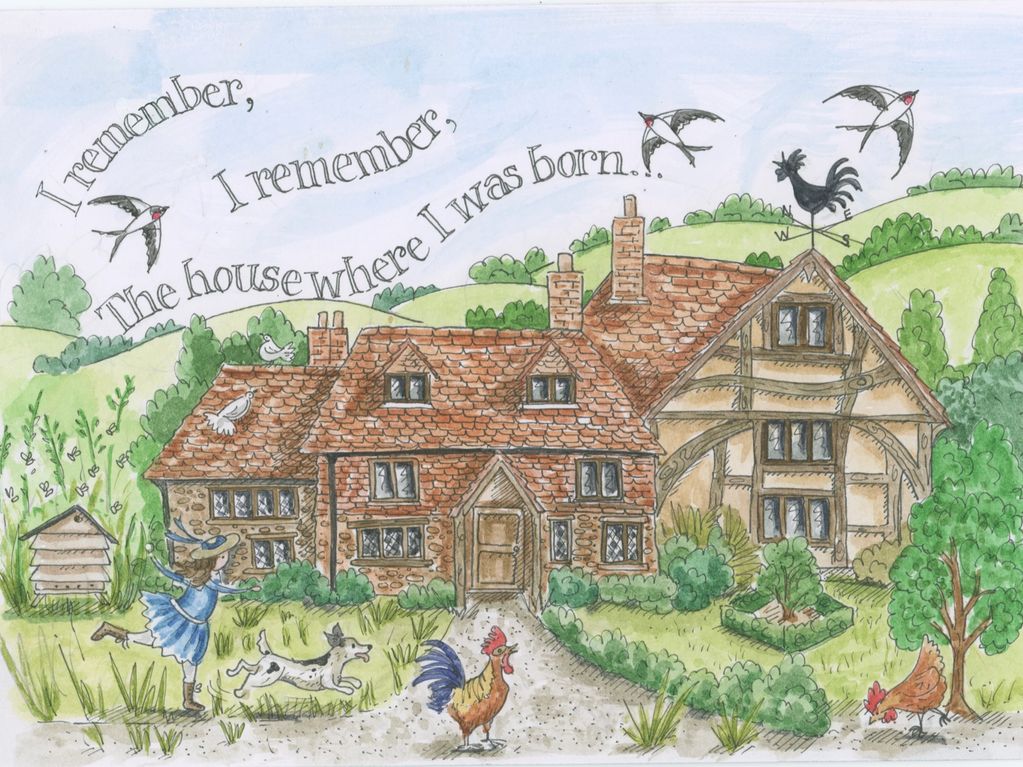 I remember,
I remember,
The house where I was born...
N
E
W
S